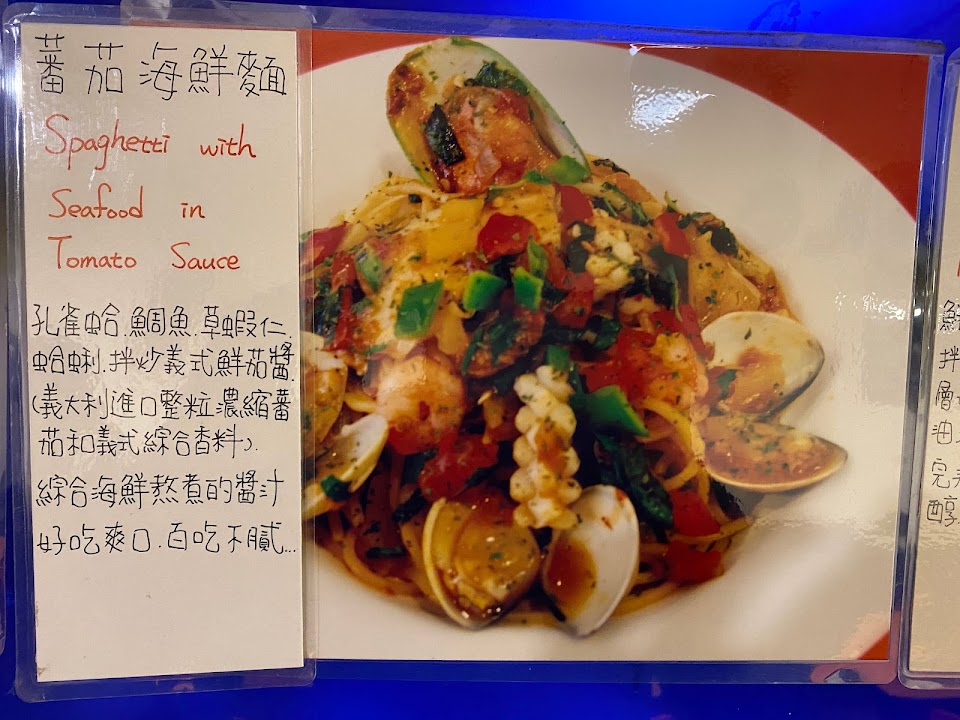 蕃茄海鮮麵
Spaghetti with
Seafood in
Tomato Sauce
孔雀蛤.鯛魚.草蝦仁.
蛤蜊.拌炒義式鮮茄醬.
(義大利進口整粒濃縮蕃
茄和義式綜合香料).
綜合海鮮熬煮的醬汁
好吃爽口.百吃不膩...
鮮
拌
層
油
完
醇